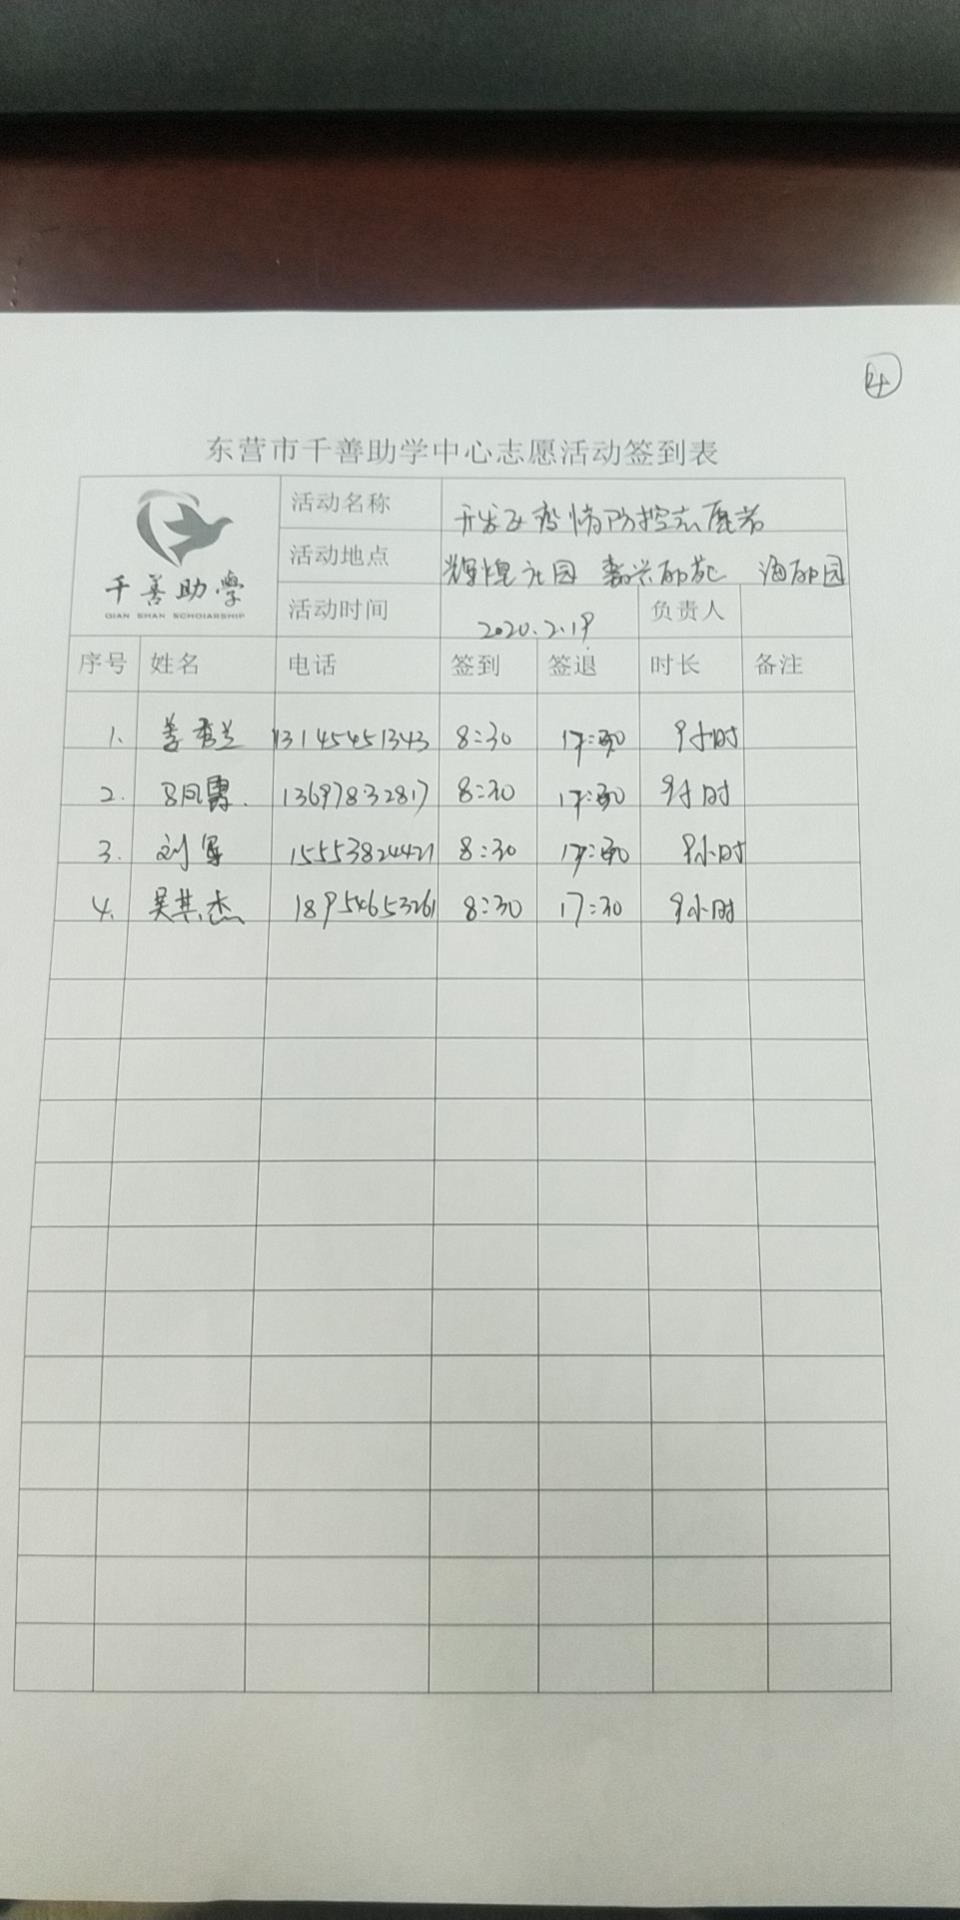 4
东营市千善助学中心志愿活动签到表
千善助学
QIAN SHAN SCHOLARSHIP
活动名称 开发区疫情防控志愿者
活动地点 辉煌花园 嘉兴丽苑 海丽园
活动时间 2020.2.19 负责人
序号 姓名 电话 签到 签退 时长 备注
1. 姜秀兰 13145451343 8:30 17:30 9小时
2. 13697832817 8:30 17:30 9小时
3. 刘军 15553824421 8:30 17:30 9小时
4. 吴其杰 18954653261 8:30 17:30 9小时